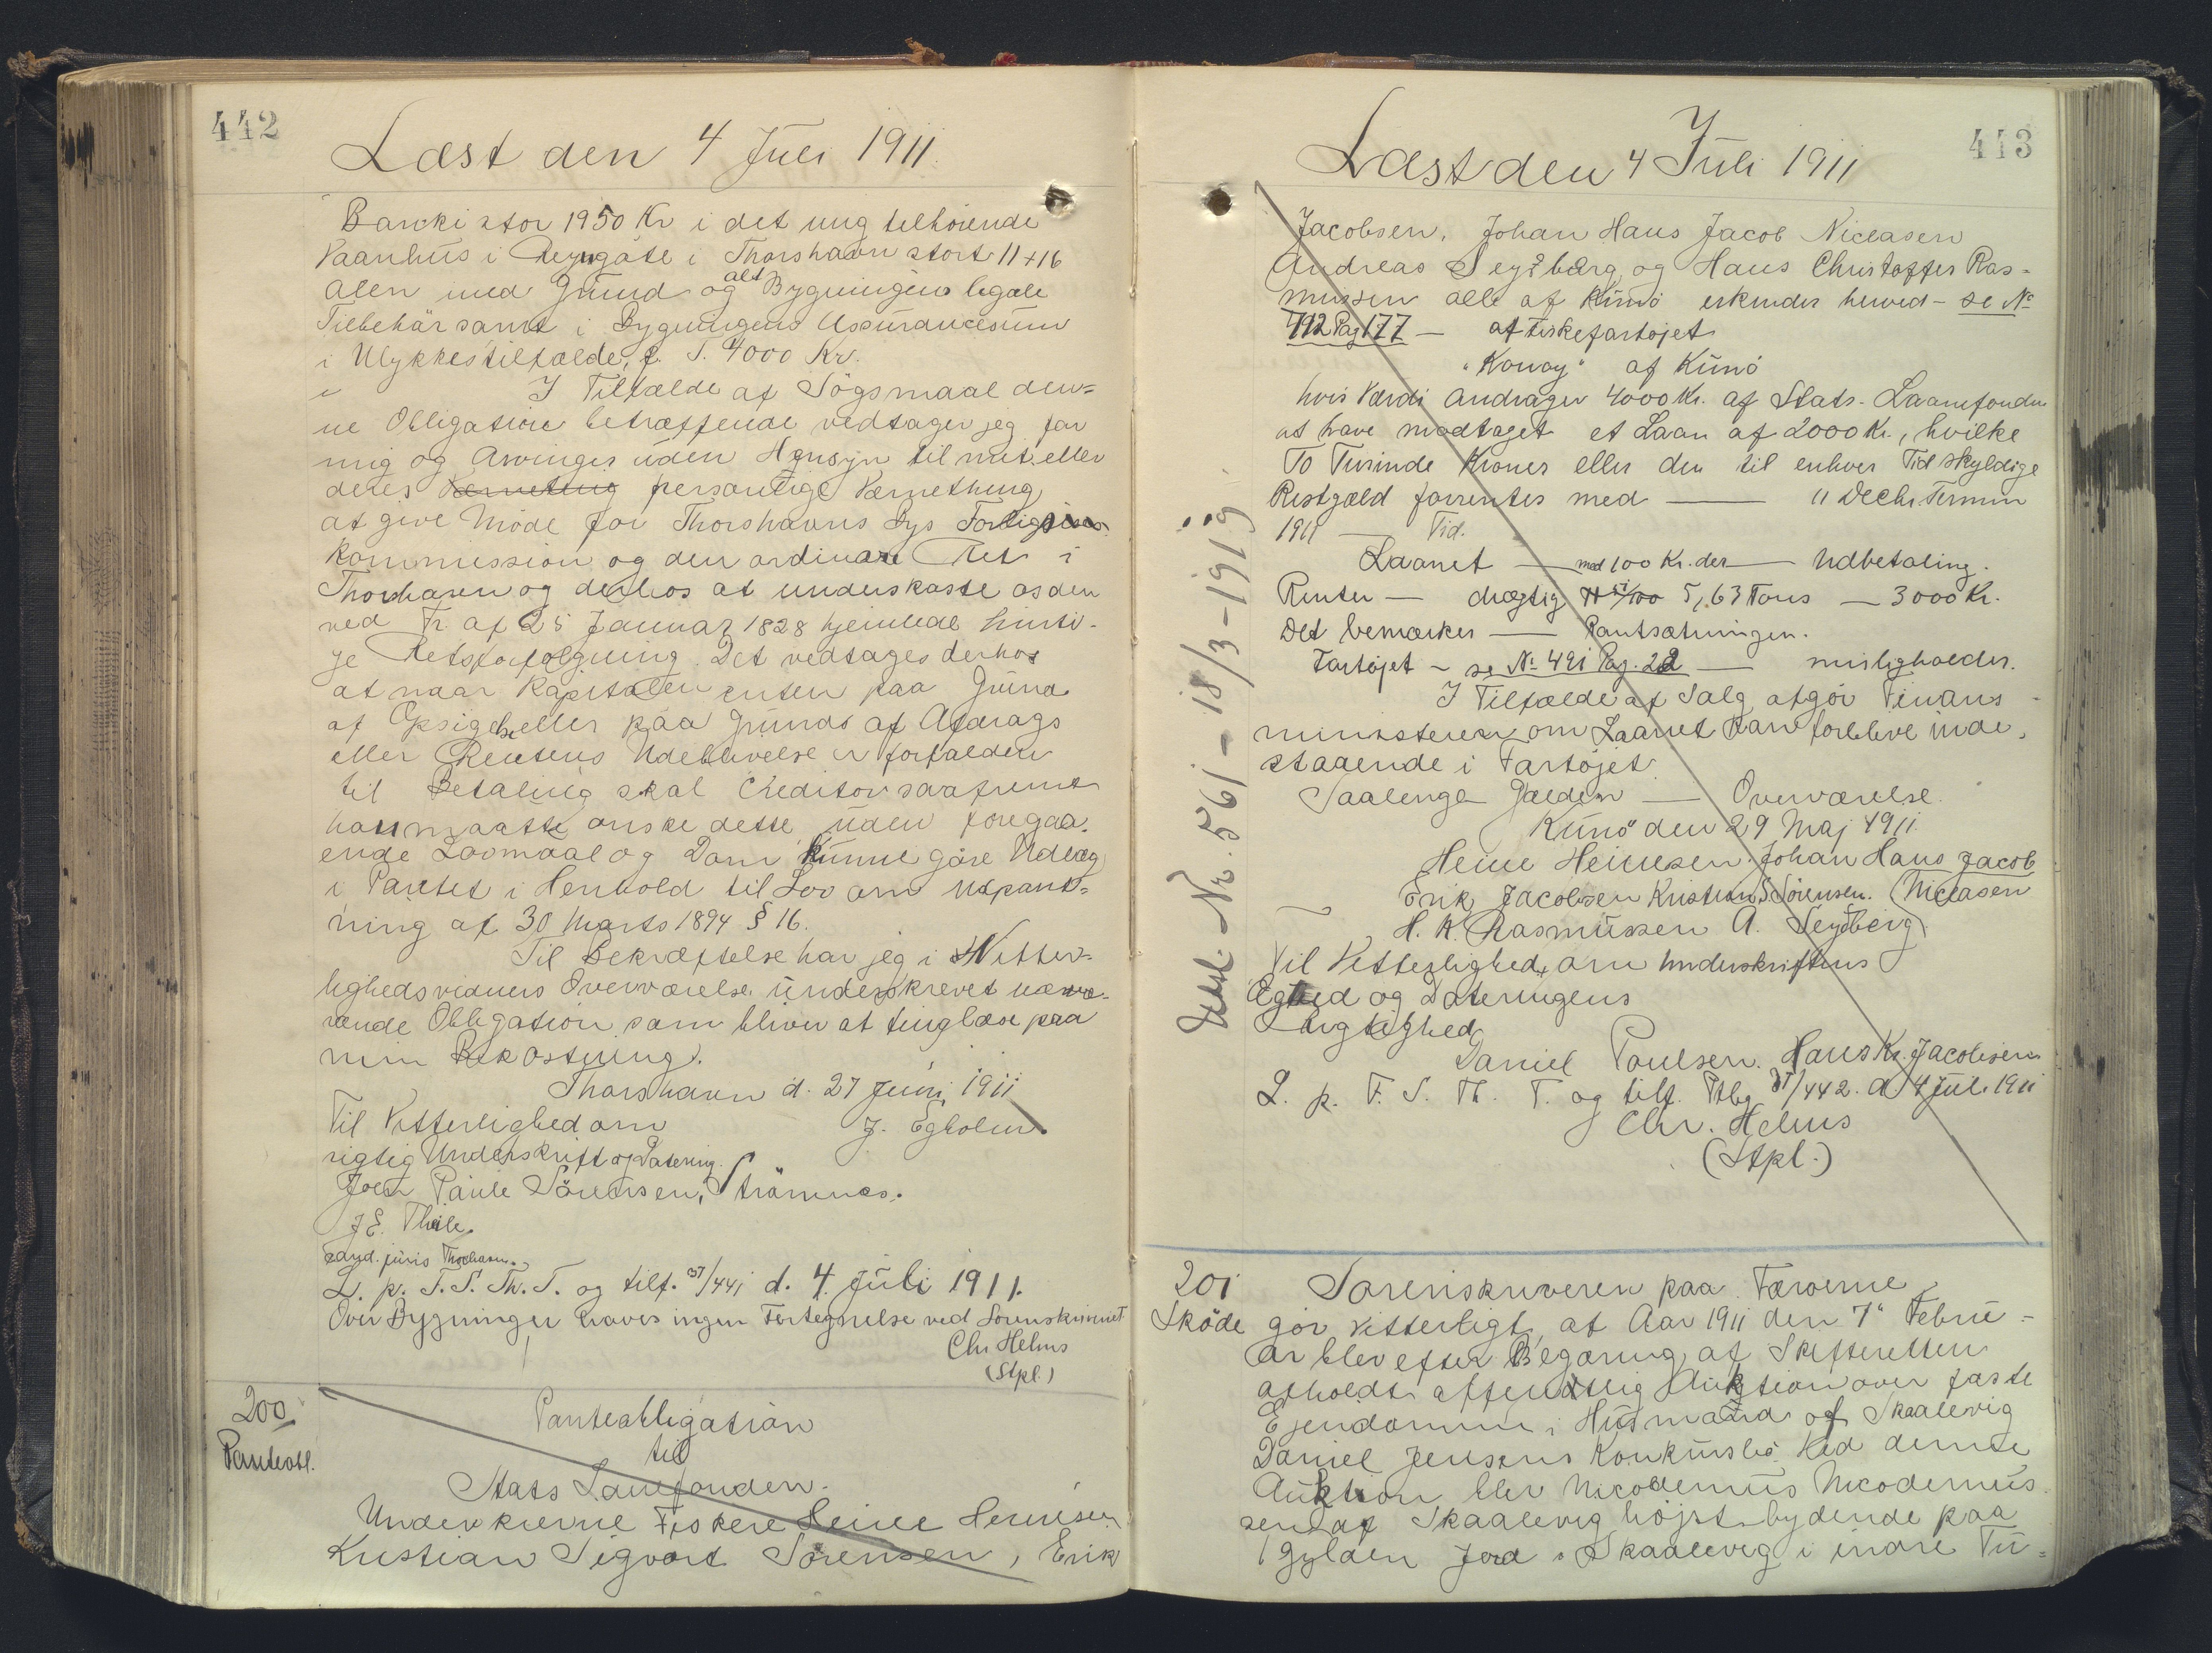 442
Læst den 4 Juli 1911.
Banki stor 1950 Kr i det mig tilhörende
Vaanhus i Reyngöte i Thorshavn stort 11+16
alen med Grund og alt Bygningens legale
Tilbehör samt i Bygningens Assurancesum
i Ulykkestilfælde, p. T. 4000 Kr.
I Tilfælde af Sögsmaal den=
ne Obligation betræffende vedtager jeg for
mig og Arvinger uden Hensyn til mit eller
deres Værneting personlige Værnething
at give Möde for Thorshavns Sys Forligs
kommission og den ordinære Ret i
Thorshavn og derhos at underkaste os den
ved Fr. af 25 Januar 1828 hjemlede hurti-
ge Retsforfølgning. Det vedtages derhos
at naar Kapitalen enten paa Grund
af Opsigelse eller paa Grund af Afdrags
eller Rentens Udeblivelse er forfalden
til Betaling skal Creditor saafremt
han maatte önske dette uden foregaa-
ende Lovmaal og Dom kunne göre Udlæg
i Pantet i Henhold til Lov om Udpant=
ning af 30 Marts 1894 § 16.
Til Bekræftelse har jeg i Vitter-
lighedsvidners Overværelse underskrevet nærvæ-
rende Obligation som bliver at tinglæse paa
min Bekostning.
Thorshavn d. 27 Juni 1911
Til Vitterlighed om J. Egholm.
rigtig Underskrift og Datering.
Joen Paule Sörensen, Strömnæs.
J E. Thile.
cand. juris Thorshavn.
L. p. F. S. Th. T. og tilf. 37/441 d. 4 Juli 1911.
Over Bygninger haves ingen Fortegnelse ved Sorenskriveriet
Chr Helms
(Stpl.)
200
Panteobl.
Panteobligation
til
Stats Lånefonden.
Undertegnede Fiskere Heine Heinesen
Kristian Sigvart Sörensen, Erik
443
Læst den 4 Juli 1911
Jacobsen, Johan Hans Jacob Niclasen
Andreas Seyðberg og Hans Christoffer Ras-
mussen alle af Kunö erkender herved - se №
492 Pag 177 - af Fiskefartöjet
"Konoy" af Kunö
hvis Værdi andrager 4000 Kr. af Stats-Laanefonden
at have modtaget et Laan af 2000 Kr., hvilke
To Tusinde Kroner eller den til enhver Tid skyldige
Restgæld forrentes med — 11 Decbr. Termin
1911 — Tid.
Laanet — med 100 Kr. der — Udbetaling.
Renter — drægtig 5,63 Tons — 3000 Kr.
Det bemærkes — Pantsætningen.
Fartöjet - se № 491 Pag. 22 — misligholdes.
I Tilfælde af Salg afgör Finans
ministeriet, om Laanet kan forblive inde-
staaende i Fartöjet.
Saalænge Gælden — Overværelse.
Kunö den 29 Maj 1911.
Heine Heinesen. Johan Hans Jacob
Erik Jacobsen Kristian S. Sörensen. (Niclasen
H. K. Rasmussen A. Seyðberg
Til Vitterlighed om Underskriftens
Ægthed og Dateringens
Rigtighed
Daniel Poulsen. Hans Kr. Jacobsen
L. p. F. S. Th. T. og tilf. Ptbg 37/442. d 4 Juli 1911
Chr. Helms
(Stpl.)
Udsl. Nr. 561 - 18/3-1919.
201
Sköde
Sorenskriveren paa Færöerne
gör vitterligt, at Aar 1911 den 7' Febru-
ar blev efter Begæring af Skifteretten
afholdt offentlig Auktion over faste
Ejendomme i Husmand af Skaalevig
Daniel Jensens Konkursbo. Ved denne
Auktion blev Nicodemus Nicodemus-
sen af Skaalevig höjstbydende paa
1 Gylden Jord i Skaalevig i indre Tu=